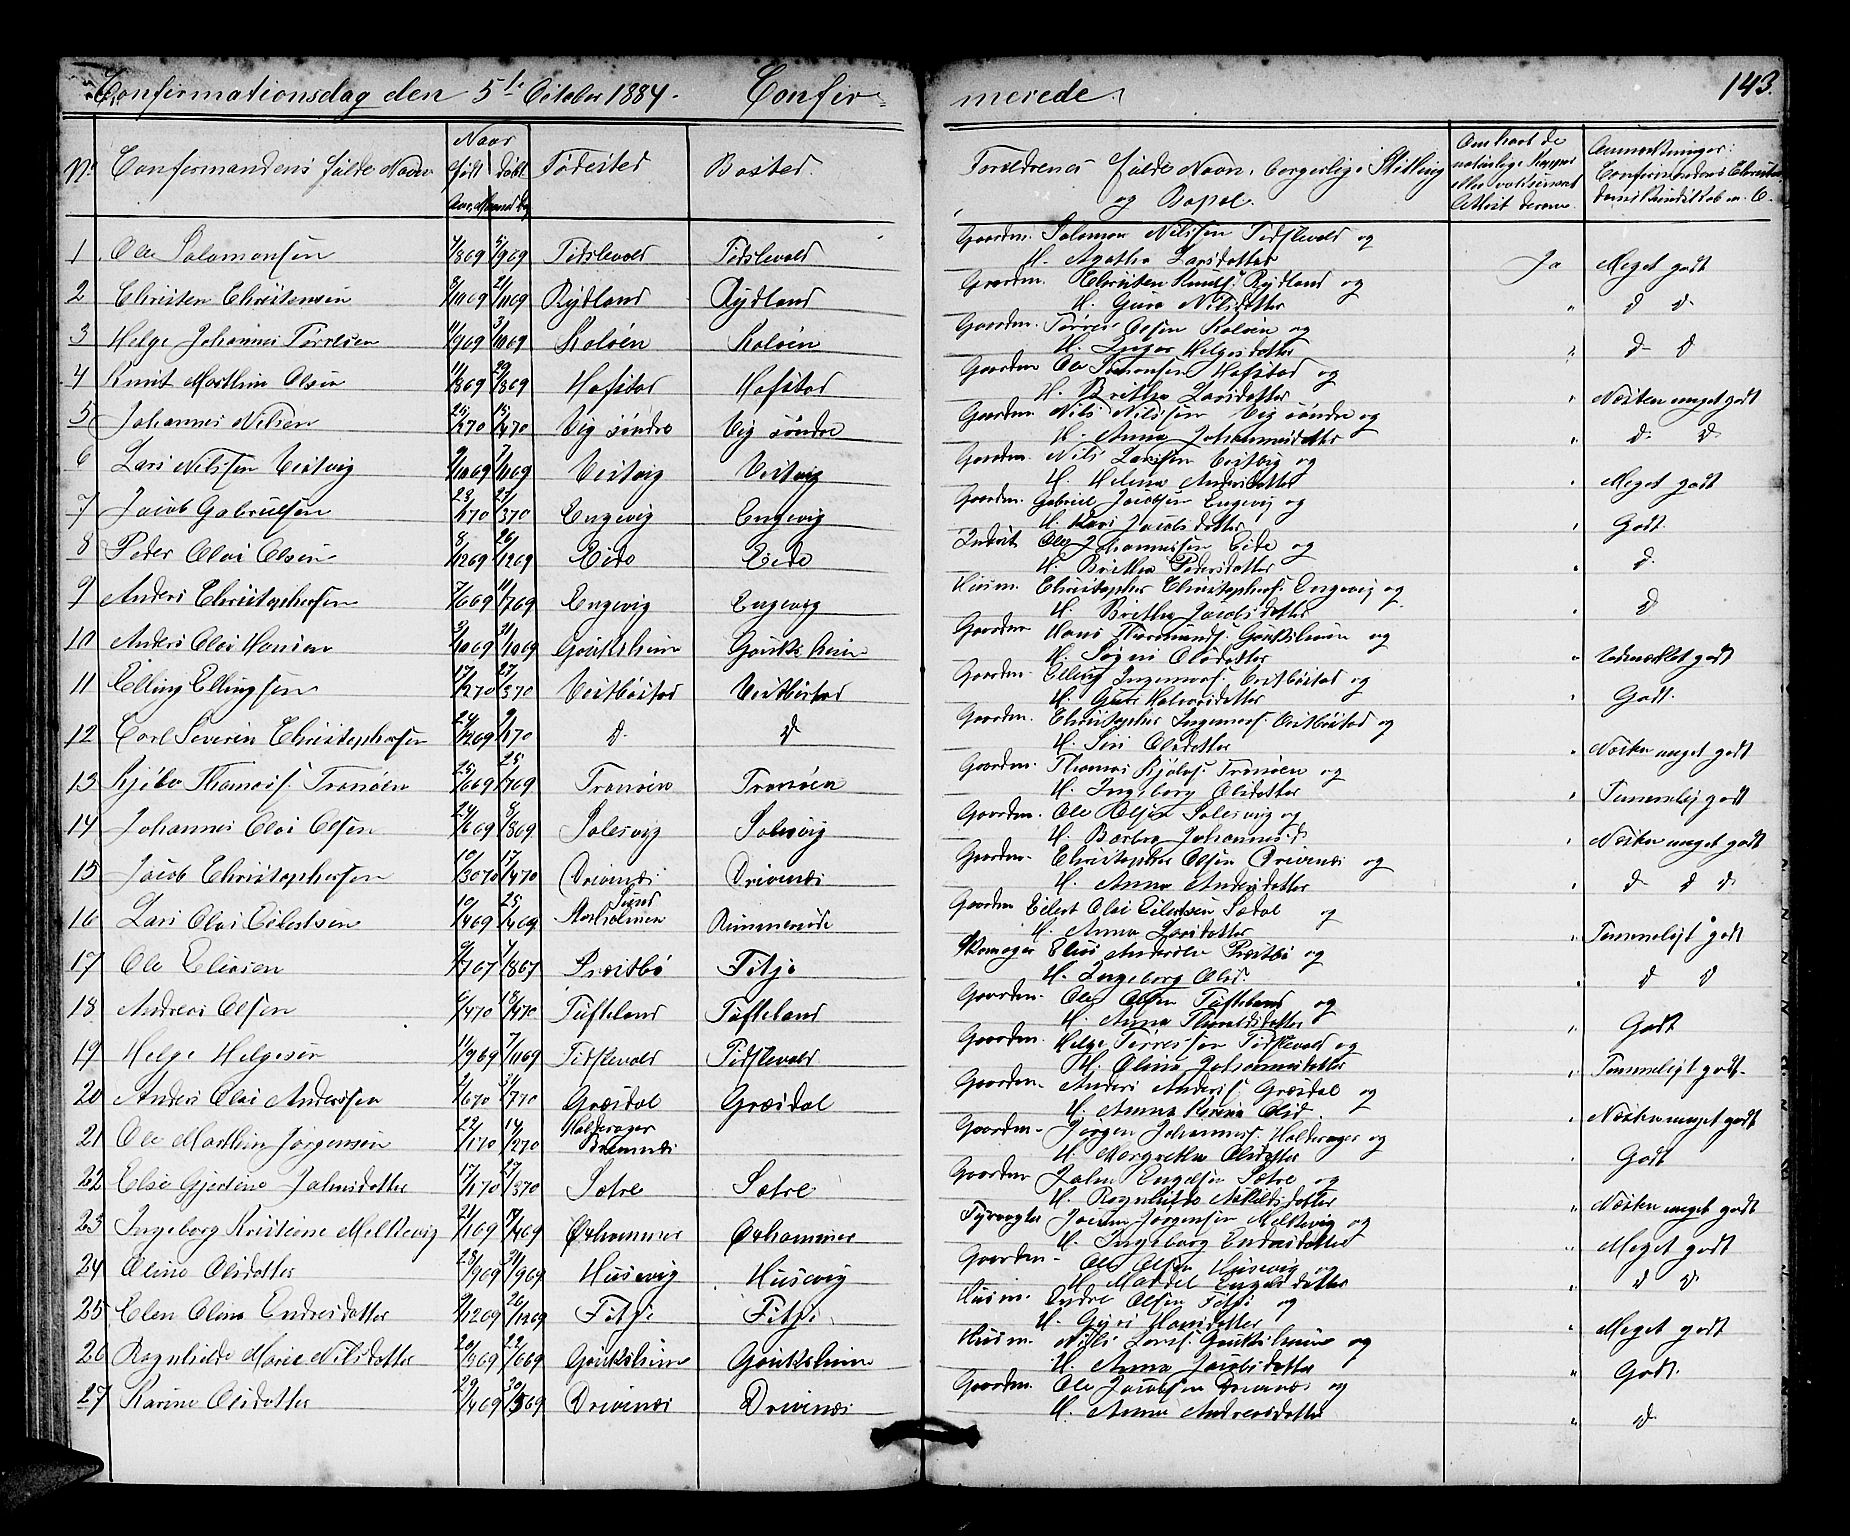 Confirmationsdag den 5te October 1884. Confir-
merede. 143.
No Confirmandens fulde Navn Naar født døbt Aar, Maaned Dag Fødested Bosted.
Forældrenes fulde Navn, borgerlige Stilling og Bopel. Om havt de naturlige Kopper eller vaksineret Attest derom. Anmærkninger: Confirmandens Christendomskundskab m. C.
1 Ole Salomonsen 4/869 5/969 Fidslevold Fidslevold Gaardm. Salomon Nilssen Fidslevold og H. Agatha Larsdatter Ja Meget godt
2 Christen Christensen 8/1069 21/1069 Rydland Rydland Gaardm. Christen Knuds. Rydland og H. Guro Nilsdatter " d d
3 Helge Johannes Tørresen 11/969 3/1069 Koløen Koløen Gaardm. Tørres Olsen Koløen og H. Helgesdatter " d d
4 Knut Marthin Olsen 11/869 29/869 Hofstad Hofstad Gaardm. Ole Hofstad og H. Britha Larsdatter " Næsten meget godt
5 Johannes Nilsen 25/270 13/470 Vig søndre Vig søndre Gaardm. Nils Nilssen Vig søndre og H. Anna Johannesdatter " d d
6 Lars Nilssen Vestvig Vestvig Vestvig Gaardm. Nils Larssen Vestvig og H. Helena Andersdatter " Meget godt
7 Jacob Gabrielsen 23/170 27/370 Engevig Engevig Gaardm. Gabriel Jacobsen Engevig og H. Kari Jacobsdatter " Godt
8 Peder Olai Olsen 8/1269 26/1269 Eide Eide Inderst Ole Johannessen Eide og H. Britha Pedersdatter " d
9 Anders Christophersen 7/669 11/769 Engevig Engevig Husm. Christopher Christophers. Engevig og H. Britha Jacobsdatter " d
10 Anders Olai Hansen 3/1069 21/1069 Gouksheim Gouksheim Gaardm Hans Gouksheim og H. Søgni Olsdatter " Udmærket godt
11 Elling Ellingsen 17/270 27/370 Vestbøstad Vestbøstad Gaardm. Elling Ingemars. Vestbøstad og H. Guri Halvorsdatter " Godt.
12 Carl Severin Christophersen 24/1269 9/170 d d Gaardm. Christopher Ingemars. Vestbøstad og H. Siri Olsdatter " Næsten meget godt
13 Kjølv Thomas. Tranøen 25/669 25/769 Tranøen Tranøen Gaardm. Thomas Kjølvs. Tranøen og H. Ingeborg Olsdatter " Temmelig godt
14 Johannes Olai Olsen 24/669 8/869 Salesvig Salesvig Gaardm. Ole Olsen Salesvig og H. Barbra Johannesd. " Næsten meget godt
15 Jacob Christophersen 10/370 17/470 Drivenæs Drivenæs Gaardm. Christopher Olsen Drivenæs og H. Anna Andersdatter " d d d
16 Lars Olai Eilertsen 10/469 25/469 Sund Rimmereide Gaardm Eilert Olai Eilertsen Sædal og H. Anna Larsdatter " Temmeligt godt
17 Ole Eliasen 9/767 7/867 Præstbø Fitje Skomager Elias Andersen Præstbø og H. Ingeborg Olsd. " d d
18 Andreas Olsen 6/470 18/470 Tufteland Tufteland Gaardm. Ole Olsen Tufteland og H. Anna Thoraldsdatter " Godt
19 Helge Helgesen 11/969 7/1169 Fidslevold Fidslevold Gaardm. Helge Tørressen Fidslevold og H. Olina Johannesdatter " Temmeligt godt.
20 Anders Olai Anderssen 2/670 31/770 Græsdal Græsdal Gaardm. Anders Anders. Græsdal og H. Anna Karina Olsd. " Næsten meget godt
21 Ole Marthin Jørgensen 22/170 14/270 Halderager Bremnæs Gaardm. Jørgen Johannes. Halderager og H. Margretha Olsdatter " Godt
22 Else Gjertine Johnsdatter 17/170 27/370 Sætre Sætre Gaardm John Engelsen Sætre og H. Ragnhilde datter " Næsten meget godt
23 Ingeborg Kristine Meltevig 21/169 17/469 Ørhammer Ørhammer Fyrvogter Jørgensen Meltevig og H. Ingeborg Endresdatter " Meget godt
24 Olina Olsdatter 23/969 Husevig Husevig Gaardm. Ole Olsen Husevig og H. Mardel Engelsdatter " d d
25 Elen Olina Endresdatter 9/1269 26/1269 Fitje Fitje Husm. Endre Olsen Fitje og H. Gyri Hansdatter " Meget godt
26 Ragnhilde Marie Nilsdatter 20/369 22/669 Gouksheim Gouksheim Husm. Nils Larss. Gouksheim og H. Anna Jacobsdatter " Godt.
27 Karine Olsdatter 29/469 30/569 Drivenæs Drivenæs Gaardm. Ole Jacobsen Drivenæs og H. Anna Andersdatter " d